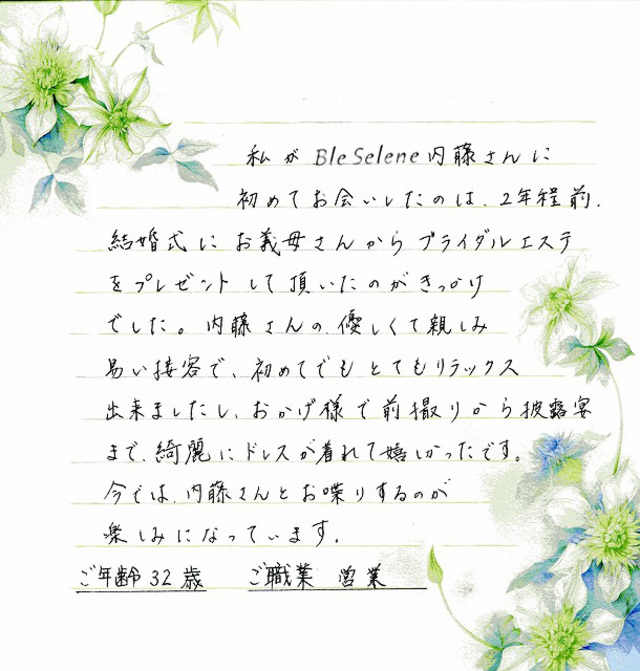 私がBleSelene内藤さんに
初めてお会いしたのは、2年程前、
結婚式にお義母さんからブライダルエステ
をプレゼントして頂いたのがきっかけ
でした。内藤さんの、優しくて親しみ
易い接客で、初めてでもとてもリラックス
出来ましたし、おかげ様で前撮りから披露宴
まで、綺麗にドレスが着れて嬉しかったです。
今では、内藤さんとお喋りするのが
楽しみになっています。
ご年齢 32 歳 ご職業 営業